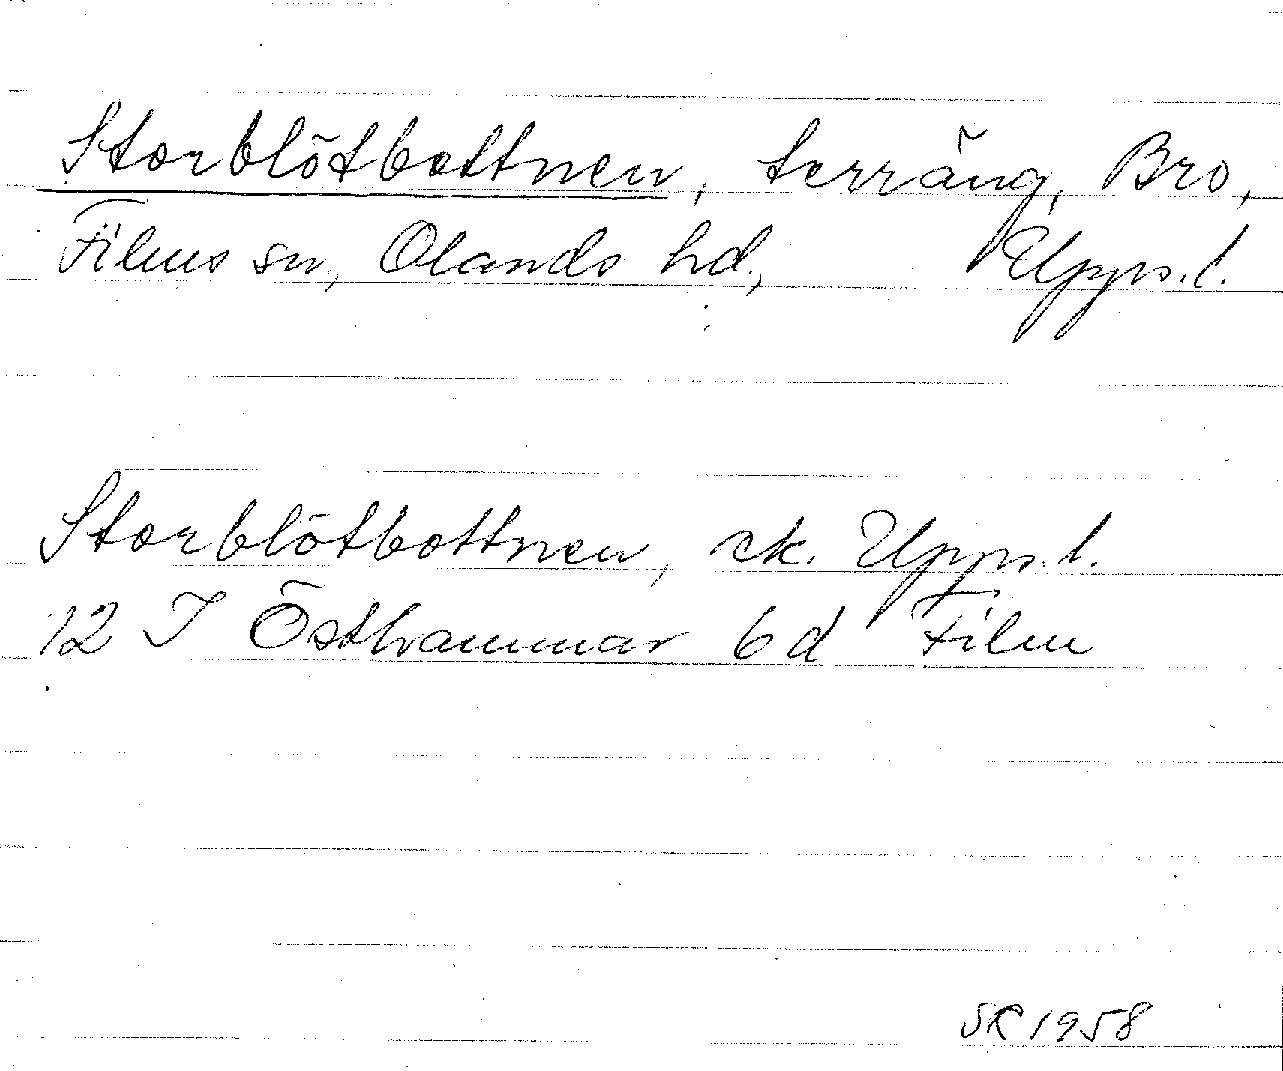 Storblötbottnen, terräng, Bro,
Films sn, Olands hd, Upps. l.
Storblötbottnen, ek. Upps. l.
12 I Östhammar 6d Film
SR 1958